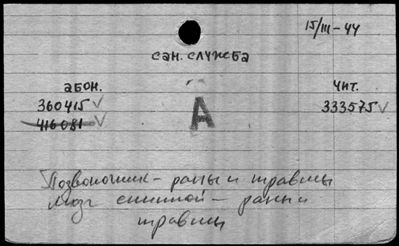 15/III-44
сан. служба
абон. чит.
360415 ✓ А 333575 ✓
416081 ✓
Позвоночник – раны и травмы
Мозг спинной – раны и
травмы